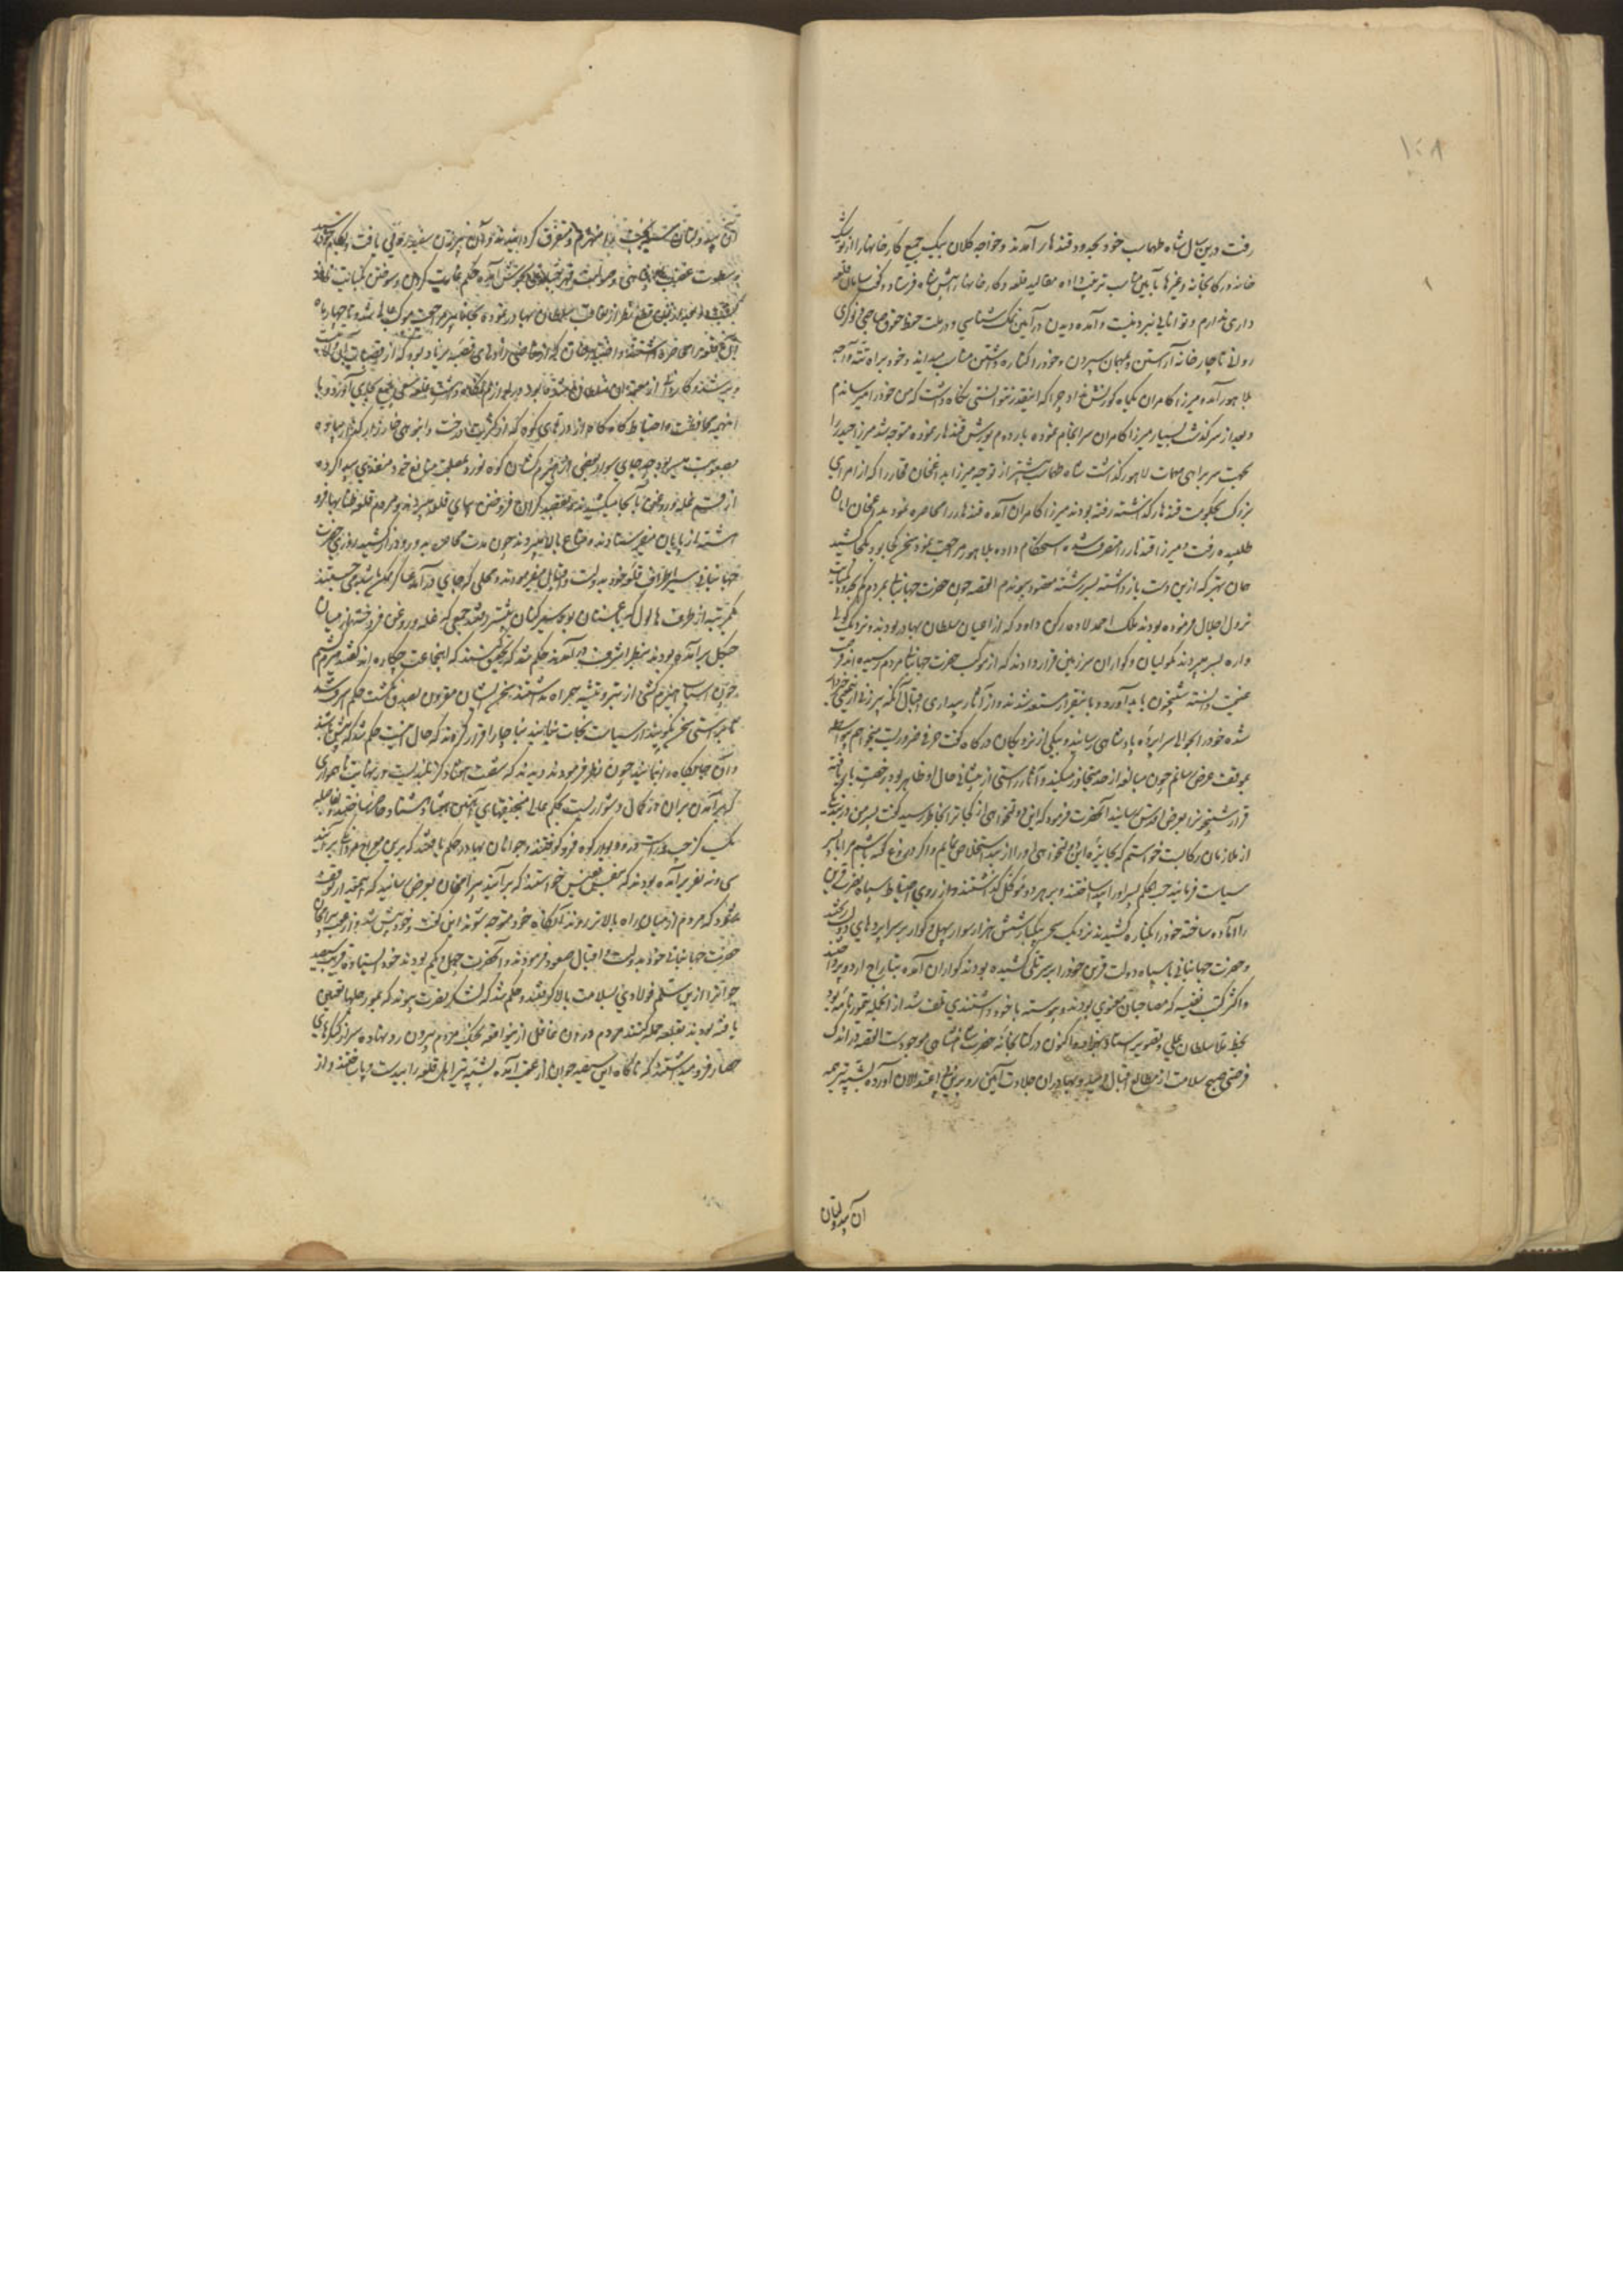 ۱۰۸
رفت درین سال شاه طهماسب خود بحدود قندهار آمدند و خواجه کلان بیک جمیع کارخانها را از توشک
خانه و رکابخانه و غیرها بآیین مناسب ترتیب داده مقالید قلعه و کارخانها را پیش شاه فرستاد و گفت سامان قلعه
داری ندارم و توانایی نبرد نیست و آمده دیدن در آیین نمک شناسی و در ملت حفظ حقوق صاحبی و نوکری
روا نی ناچار خانه آراستن و بمهمان سپردن و خود را کناره داشتن مناسب میداند و خود براه تته و اچه
بلاهور آمده میرزا کامران یکماه کورنش نداد چرا که اینقدر نتوانستی نگاه داشت که من خود را میرساندم
و بعد از سرگذشت بسیار میرزا کامران سرانجام نموده بار دوم یورش قندهار نموده متوجه شد میرزا حیدر را
بجهت سربراهی مهمات لاهور گذاشت شاه طهماسب پیشتر از توجه میرزا بداغ خان قاجار را که از امرای
بزرگ بحکومت قندهار گذاشته رفته بودند میرزا کامران آمده قندهار را محاصره نمود بداغ خان امان
طلبیده رفت و میرزا قندهار را متصرف شده استحکام داده بلاهور مراجعت نمود سخن کجا بود و بکجا کشید
همان بهتر که ازین دست باز داشته بسر رشته مقصود پیوندم القصه چون حضرت جهانبانی بمردم کم بحدود کنبایت
نزول اجلال فرموده بودند ملک احمد لاد و رکن داود که از اعیان سلطان بهادر بودند و نزدیک کولی
واره بسر میبردند بکولیان و کواران سرزمین قرار دادند که از موکب حضرت جهانبانی مردم رسیده اند فرصت
غنیمت دانسته شبیخون باید آورد و باینقرار مستعد شدند و از آثار بیداری اقبال آنکه پیرزنی ازین معنی خبردار
شده خود را بحوالی سراپرده پادشاهی رسانید و بیکی از نزدیکان درگاه گفت حرفی ضروریست میخواهم بواسطه
بموقف عرض رسانم چون مبالغه از حد متجاوز میکند و آثار راستی از پیشانی حال او ظاهر بود رخصت بار یافته
قرار شبیخون را بعرض اقدس رسانید آنحضرت فرمود که این دولتخواهی از کجا ترا بخاطر رسید گفت پسر من در بند یکی
از ملازمان رکابست خواستم که بجایزه این دولتخواهی او را از بند استخلاص نمایم و اگر دروغ گفته باشم مرا با پسر
سیاست فرمایند حسب الحکم پسر او را پیدا ساختند و بر هر دو موکل گذاشتند و از روی احتیاط سپاه نصرت قرین
را آماده ساخته خود را بکناره کشیدند نزدیک سحر بیکبار شش هزار سوار بهیل و کوار بر سراپردهای دولت ریختند
و حضرت جهانبانی با سپاه دولت قرین خود را بر سر تلی کشیده بودند کواران آمده بتاراج اردو پرداختند
و اکثر کتب نفیسه که مصاحبان معنوی بودند و پیوسته با خود داشتندی تلف شد از انجمله تیمورنامه بود
بخط ملا سلطان علی و تصویر استاد بهزاد که اکنون در کتابخانه حضرت شاهنشاهی موجودست القصه در اندک
فرصتی صبح سلامت از مطالع اقبال دمید و بهادران جلادت آیین رو برین بی اعتدالان آورده بشیبه تیر همه
آن بیدولتان
آن بیدولتان سیه بخت را منهزم و متفرق گردانیدند و آن پیرزن سفیدرو ئی یافت و بکام خود رسید
و سطوت غضب پادشاهی و صولت قهر جهانبانی بجوش آمده حکم غارت کردن و سوختن کنبایت نفاذ
یافت و بعد ازین قطع نظر از تعاقب سلطان بهادر نموده بجانب چانپانیر مراجعت موکب عالی شد و تا چهار ماه
این قلعه را محاصره داشتند و اختیار خان که از قاضی زادهای قصبه نریاد بود که از قصبات آن ولایت
و برشد و کاردانی از معتمدان سلطان شده بود در لوازم اهتمام داشت و قلعه سعی بلیغ بجای آورد و با
اینهمه محافظت و احتیاط گاه گاه از درهای کوه که از کثرت درخت و انبوهی خار زار گذار پیاده
بصعوبت میسر بود چه جای سوار بعضی از هیزم کشان کوه نورد بمصلحت منافع خود منفذی پیدا کرده
از قسم غله و روغن بآنجا میکشیدند و بقصد گران فروختن بپای قلعه میبردند و مردم قلعه طنابها فرو
هشته از پایان زر میفرستادند و متاع بالا میبردند چون مدت محاصره دور و دراز کشید روزی حضرت
جهانبانی بسیر اطراف قلعه خود بدولت و اقبال میفرمودند و محلی که جای درآمد عساکر ممکن باشد می جستند
یک مرتبه از طرف هالول که باغستان بود سیرکنان پیشتر رفتند جمعی که غله و روغن فروخته از میان
جنگل برآمده بودند بنظر اشرف درآمدند حکم شد که تحقیق کنند که اینجماعت چکاره اند گفتند هیزم کشیم
چون اسباب هیزم کشی از تبر و تیشه همراه نداشتند سخن ایشان مقرون بصدق نگشت حکم اشرف شد
تا براستی سخن نگویند از سیاست نجات نیابند ناچار اقرار کردند که حال اینست حکم شد که پیش باشند
و آن جایگاه را نمایند چون بنظر فرمودند دیدند که شصت هفتاد گز بلندیست در نهایت ناهمواری
که برآمدن بران در کمال دشواریست بحکم عالی میخهای آهنین هفتاد هشتاد حاضر ساختند و بفاصله
یک گز چپ و راست در دیوار کوه فرو کوفتند و جوانان بهادر حکم یافتند که برین معراج مردانگی برآیند
سی و نه نفر برآمده بودند که بنفس نفیس خواستند که برآیند بیرام خان بعرض رسانید که آنمقدار توقف
شود که مردم از میان راه بالاتر روند آنگاه خود متوجه شوند این گفت و خود پیش شد و از عقب بیرام خان
حضرت جهانبانی خود بدولت و اقبال صعود فرمودند و آنحضرت چهل و یکم بودند خود ایستاده قریب سیصد
جوانرا ازین سلم فولادی بسلامت بالا کشیدند و حکم شد که لشکر نصرت پیوند که بمورچلها تعیین
یافته بودند بقلعه حمله کنند مردم درون غافل ازینواقعه بجنگ مردم بیرون رو نهاده سر از کنگرهای
حصار فرو میداشتند که ناگاه این سیصد جوان از عقب آمده بشیبه تیر اهل قلعه را بیدست و پا ساختند و از